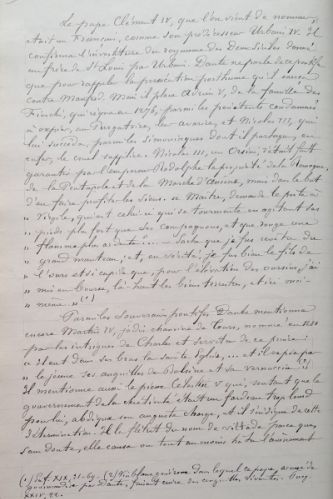 Le pape Clément IV, que l'on vient de nommer,
était un Français, comme son prédécesseur Urbain IV. Il
confirma l'investiture du royaume des Deux Siciles donné
au frère de St Louis par Urbain. Dante ne parle de ce pontife
que pour rappeler la persécution posthume qu'il exerça
contre Manfred. Mais il place Adrien V, de la famille des
Fieschi, qui régna en 1276, parmi les pénitents condamnés
à expier, au Purgatoire, leur avarice, et Nicolas III, qui
lui succéda, parmi les simoniaques dont il partage, en
enfer, le cruel supplice. Nicolas III, un Orsini, s'était fait
garantir par l'empereur Rodolphe la propriété de la Romagne,
de la Pentapole et de la Marche d'Ancône, mais dans le but
d'en faire profiter les siens. « Maître, demande le poète à
Virgile, quel est celui qui se tourmente en agitant ses
» pieds plus fort que ses compagnons, et que ronge une
» flamme plus ardente?... — Sache que je fus revêtu du
» grand manteau; et, en vérité, je fus bien le fils de
» l'ourse et si cupide que, pour l'élévation des oursins, j'ai
» mis en bourse, là-haut les biens terrestres, et ici moi-
» même. » (1)
Parmi les souverains pontifes Dante mentionne
encore Martin IV, jadis chanoine de Tours, nommé en 1280
par les intrigues de Charles et serviteur de ce prince:
« Il eut dans ses bras la sainte Église, ... et il expie par
» le jeûne ses anguilles de Bolsène et sa vernaccia. » (2)
Il mentionne aussi le pieux Célestin V qui, sentant que le
gouvernement de la chrétienté était un fardeau trop lourd
pour lui, abdiqua son auguste charge, et il s'indigne de cette
détermination. Il la flétrit du nom de viltà parce que,
sans doute, elle causa ou tout au moins hâta l'avènement
(1) Inf. XIX, 31-69. (2) Vin blanc dans lequel ce pape, accusé de
gourmandise par Dante, faisait cuire des anguilles vivantes. Purg.
XXIV, 22.